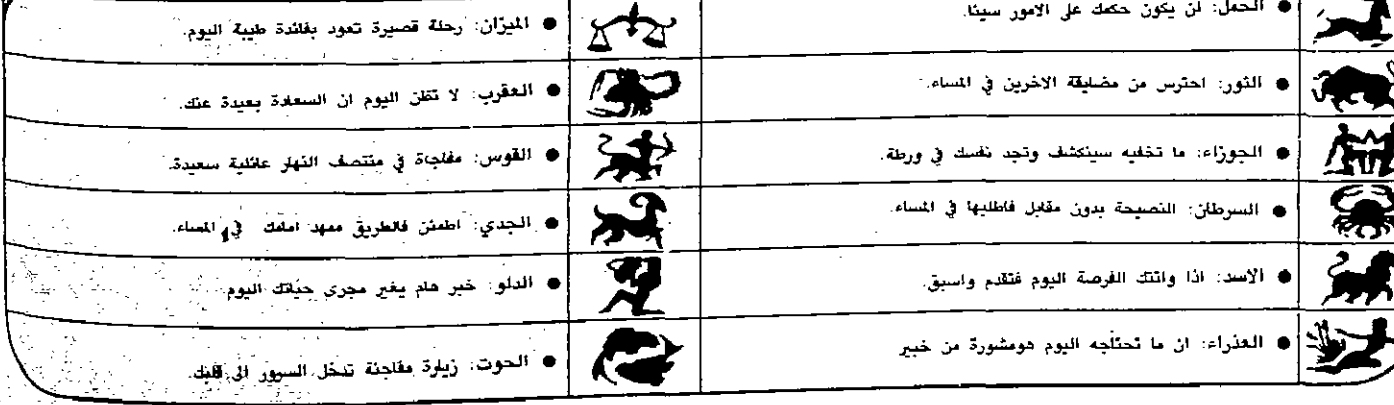 ● الحمل: لن يكون حكمك على الامور سيئا.
● الثور: احترس من مضايقة الاخرين في المساء.
● الجوزاء: ما تخفيه سينكشف وتجد نفسك في ورطة.
● السرطان: النصيحة بدون مقابل فاطلبها في المساء.
● الاسد: اذا واتتك الفرصة اليوم فتقدم واسبق.
● العذراء: ان ما تحتاجه اليوم هومشورة من خبير
● الميزان: رحلة قصيرة تعود بفائدة طيبة اليوم.
● العقرب: لا تظن اليوم ان السعادة بعيدة عنك.
● القوس: مفاجاة في منتصف النهار عائلية سعيدة.
● الجدي: اطمئن فالطريق ممهد امامك في المساء.
● الدلو: خبر هام يغير مجرى حياتك اليوم
● الحوت: زيارة مفاجئة تدخل السرور الى قلبك.